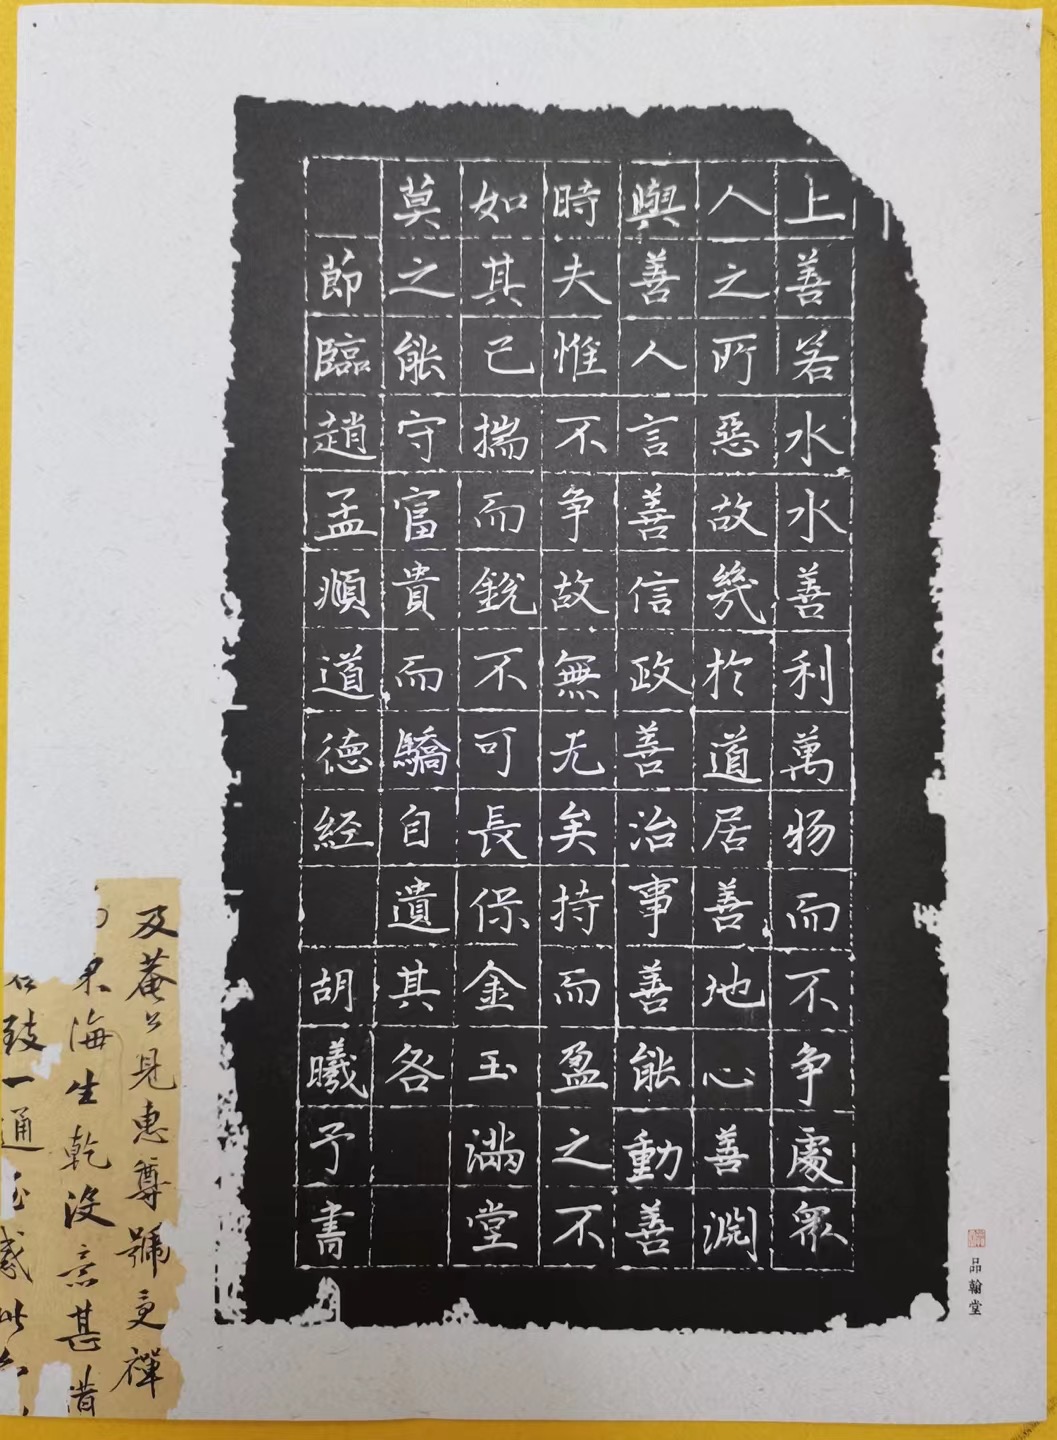 上善若水水善利萬物而不争處眾
人之所惡故幾於道居善地心善淵
與善人言善信政善治事善能動善
時夫惟不争故無尤矣持而盈之不
如其已揣而銳不可長保金玉滿堂
莫之能守富貴而驕自遺其各
節臨趙孟頫道德経 胡曦予書
品翰堂
及菴公見惠尊號更禪
海生乾没意甚惜
致一通至感此